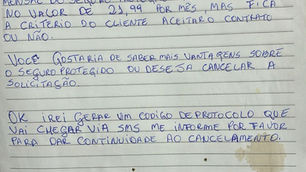 MENSAL DO SEGURO
NO VALOR DE 21,99 POR MÊS, MAS FICA
A CRITÉRIO DO CLIENTE ACEITAR O CONTRATO
OU NÃO.
VOCÊ GOSTARIA DE SABER MAIS VANTAGENS SOBRE
O SEGURO PROTEGIDO OU DESEJA CANCELAR A
SOLICITAÇÃO.
OK IREI GERAR UM CODIGO DE PROTOCOLO QUE
VAI CHEGAR VIA SMS ME INFORME POR FAVOR
PARA DAR CONTINUIDADE AO CANCELAMENTO.